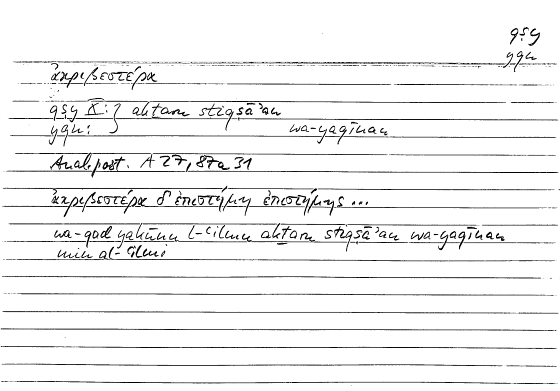 qṣy
yqn
ἀκριβεστέρα
qṣy X: } aktaru stiqṣāʾan
yqn: wa-yaqīnan
Anal. post. A 27, 87a 31
ἀκριβεστέρα δ' ἐπιστήμη ἐπιστήμης ...
wa-qad yakūnu l-ʿilmu aktara stiqṣāʾan wa-yaqīnan
min al-ʿilmi